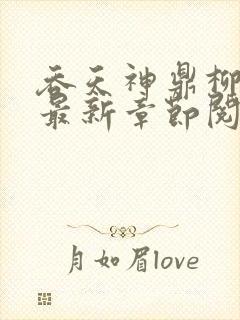 吞天神鼎柳
最新章节阅
月如眉love